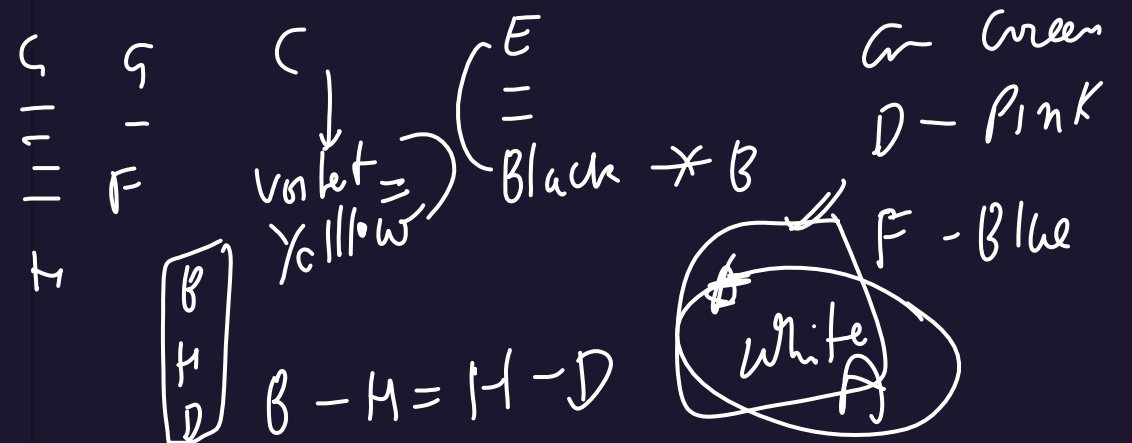 G
H
G
-
F
C
Voilet =
Yallow
E
Black * B
G - Green
D - Pink
F - Blue
B
H
D
B - H = H - D
White
A